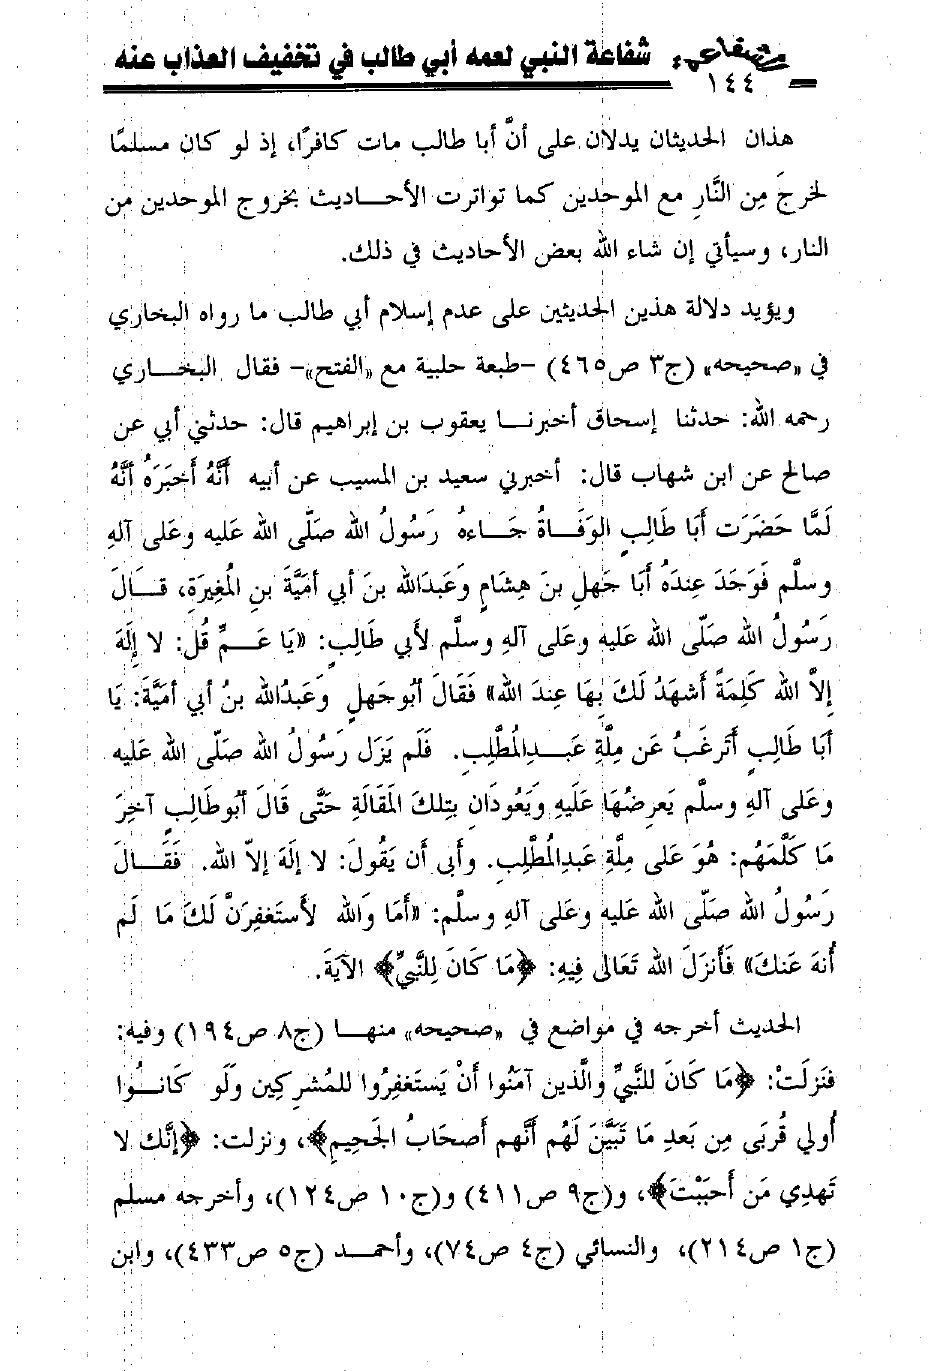 شفاعة النبي لعمه أبي طالب في تخفيف العذاب عنه
١٤٤
هذان الحديثان يدلان على أنَّ أبا طالب مات كافرًا، إذ لو كان مسلمًا
لخرجَ مِن النَّارِ مع الموحدين كما تواترت الأحاديث بخروج الموحدين من
النار، وسيأتي إن شاء الله بعض الأحاديث في ذلك.
ويؤيد دلالة هذين الحديثين على عدم إسلام أبي طالب ما رواه البخاري
في «صحيحه» (ج٣ ص٤٦٥) -طبعة حلبية مع «الفتح»- فقال البخاري
رحمه الله: حدثنا إسحاق أخبرنا يعقوب بن إبراهيم قال: حدثني أبي عن
صالح عن ابن شهاب قال: أخبرني سعيد بن المسيب عن أبيه أَنَّهُ أَخبَرَهُ أنَّهُ
لَمَّا حَضَرَت أَبَا طَالِبٍ الوَفَاةُ جَاءهُ رَسُولُ الله صَلّى الله عَليه وعَلى آلهِ
وسلَّم فَوَجَدَ عِندَهُ أَبَا جَهلِ بنَ هِشَامٍ وَعَبدَالله بنَ أبي أمَيَّةَ بنِ المُغِيرَةِ، قَالَ
رَسُولُ الله صَلّى الله عَليه وعَلى آلهِ وسلَّم لأَبي طَالِبٍ: «يَا عَمِّ قُل: لا إِلَهَ
إلاّ الله كَلِمَةً أَشهَدُ لَكَ بِهَا عِندَ الله» فَقَالَ أبُوجَهلٍ وَعَبدُالله بنُ أبي أمَيَّةَ: يَا
أبَا طَالِبٍ أَتَرغَبُ عَن مِلَّةِ عَبدِالمُطَّلِبِ. فَلَم يَزَل رَسُولُ الله صَلّى الله عَليه
وعَلى آلهِ وسلَّم يَعرِضُهَا عَلَيهِ وَيَعُودَانِ بِتِلكَ المَقَالَةِ حَتَّى قَالَ أبُوطَالِبٍ آخِرَ
مَا كَلَّمَهُم: هُوَ عَلى مِلَّةِ عَبدِالمُطَّلِبِ. وأَبى أن يَقُولَ: لا إلَهَ إلاّ الله. فَقَالَ
رَسُولُ الله صَلّى الله عَليه وعَلى آلهِ وسلَّم: «أَمَا وَالله لأَستَغفِرَنَّ لَكَ مَا لَم
أُنهَ عَنكَ» فَأَنزَلَ الله تَعَالى فِيهِ: ﴿مَا كَانَ لِلنَّبِيِّ﴾ الآيَةَ.
الحديث أخرجه في مواضع في «صحيحه» منها (ج٨ ص١٩٤) وفيه:
فنَزلَتْ: ﴿مَا كَانَ للنَّبيِّ والَّذين آمَنُوا أَنْ يَستَغفِرُوا للمُشرِكِين ولَو كَانُوا
أُولي قُربَى مِن بَعدِ مَا تَبَيَّنَ لَهُم أنَّهم أَصحَابُ الجَحِيمِ﴾، ونزلت: ﴿إنَّك لا
تَهدِي مَن أَحبَبْتَ﴾، و(ج٩ ص٤١١) و(ج١٠ ص١٢٤)، وأخرجه مسلم
(ج١ ص٢١٤)، والنسائي (ج٤ ص٧٤)، وأحمد (ج٥ ص٤٣٣)، وابن